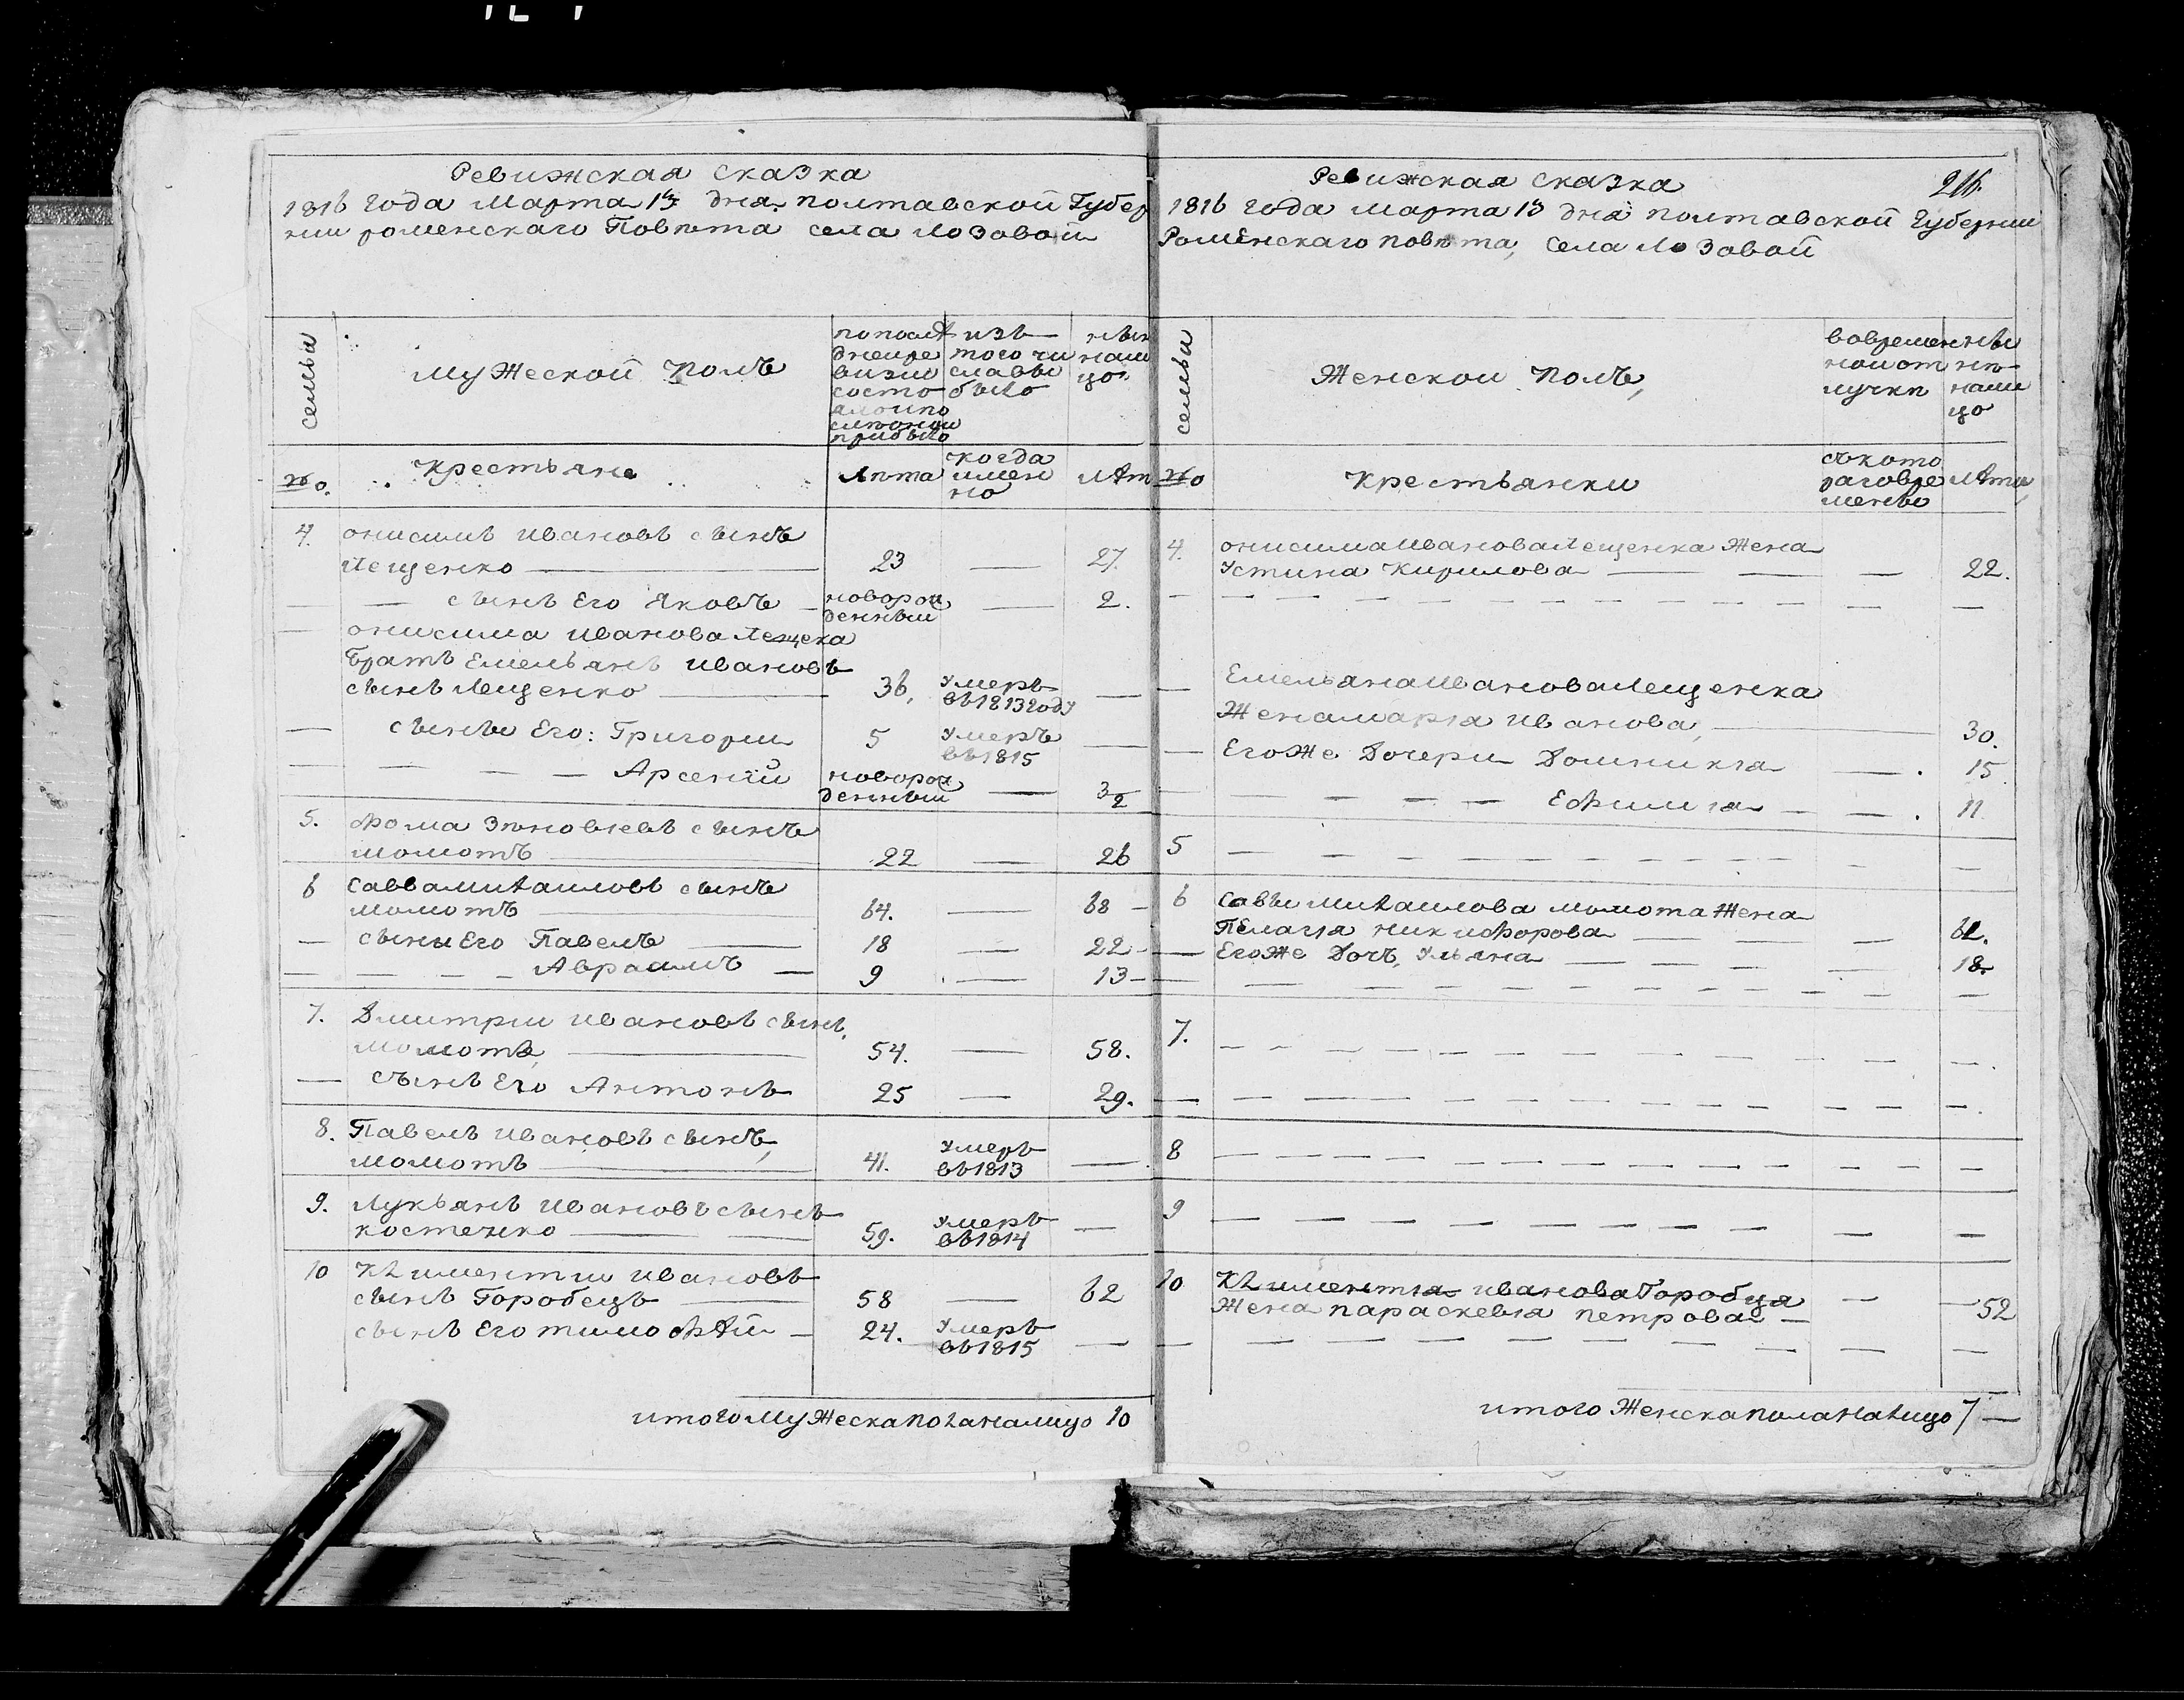 Ревижская сказка
1816 года марта 13 дня полтавской Губер
нии роменскаго Повѣта села Лозовой
семьи
Мужеской Полъ
по послѣ
дней ре
визии
состо
ялой и по
слѣ оной
прибыло
изъ
того чи
сла вы
было
нын
нали
цо
№.
Крестьяне
Лѣта
когда
имен
но
Лѣт
4. онисимъ Ивановъ сынъ
Лещенко — 23 — 27.
— — сынъ Его Яковъ — новорож
денный — 2.
— онисима Иванова Лещека
братъ Емельянъ Ивановъ
сынъ Лещенко — 36, умеръ
въ 1813 году —
— сыны Его: Григории 5 умеръ
въ 1815 —
— — — — Арсений новорож
денный — 3/2
5. Фома Зѣновіевъ сынъ
момотъ — 22 — 26
6 Савва Михаиловъ сынъ
момотъ 64. — 68 —
— сыны Его Павелъ — 18 — 22 —
— — — — Авраамъ — 9 — 13 —
7. Дмитрии Ивановъ сынъ,
момотъ, — 54. — 58.
— сынъ Его Антонъ 25 — 29.
8. Павелъ Ивановъ сынъ,
момотъ — 41. умеръ
въ 1813 —
9. Лукьянъ Ивановъ сынъ
костенко — 59. умеръ
въ 1814 —
10 Климентии Ивановъ
сынъ Горобецъ — 58 — 62
сынъ Его тимофѣй — 24. умеръ
въ 1815 —
итого Мужеска пола налицо 10
Ревижская сказка
216.
1816 года марта 13 дня полтавской Губернии
Роменскаго повѣта, села Лозовой
семьи
Женской Полъ,
во времен
ной от
лучкѣ
ны
нѣ
нали
цо
№
Крестьянки
съ кото
раго вре
мены
Лѣта,
4. онисима Иванова Лещенка Жена
Устина Кирилова — — — 22.
— — — — — — — — — —
— Емельяна Иванова Лещенка
Жена марія Иванова, — 30.
— Его Же Дочери Домникія — . 15
— — — — — Ефимія — — . 11
5 — — — — — — — — — —
6 Саввы Михаилова момота Жена
Пелагія никифорова — — — 62.
— Его Же Дочъ, Ульяна — — — — 18.
— — — — — — — — — —
7. — — — — — — — — — —
— — — — — — — — — —
8 — — — — — — — — — —
9 — — — — — — — — — —
10 Климентія Иванова Горобця
Жена параскевія петрова — — — 52
— — — — — — — — — —
итого Женска пола налицо 7 —